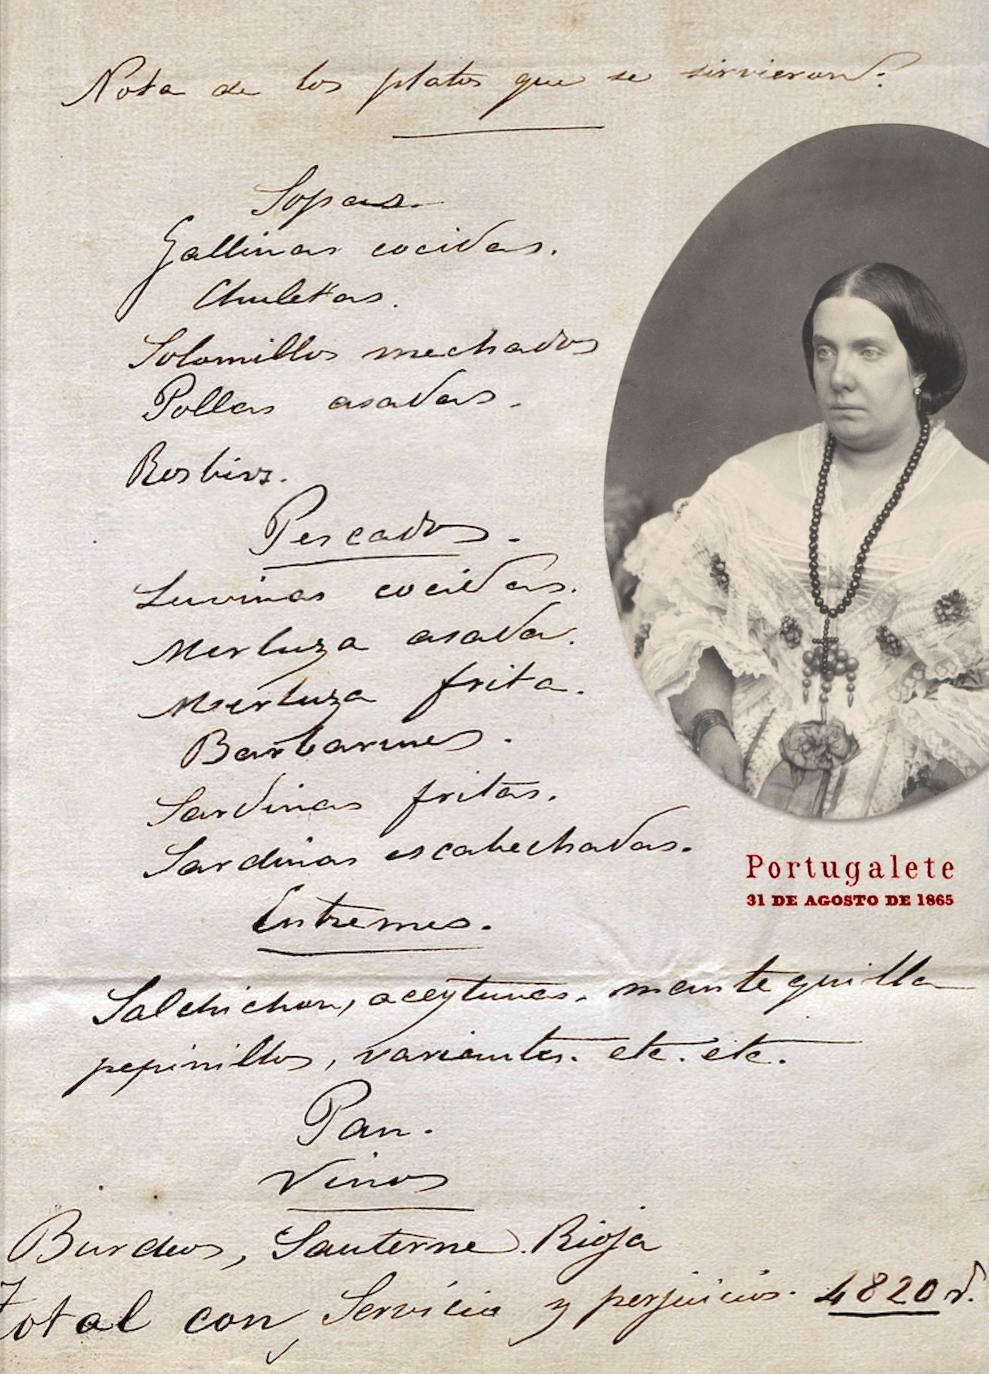 Nota de los platos que se sirvieron.
Sopas.
Gallinas cocidas.
Chuletas.
Solomillos mechados
Pollas asadas.
Rosbivs.
Pescados.
Luvinas cocidas.
Merluza asada.
Merluza frita.
Barbarines.
Sardinas fritas.
Sardinas escabechadas.
Portugalete
31 DE AGOSTO DE 1865
Entremes.
Salchichon, aceytunas. mantequilla
pepinillos, variantes. etc. etc.
Pan.
Vinos
Burdeos, Sauterne. Rioja
Total con Servicio y perjuicios. 4820 r.